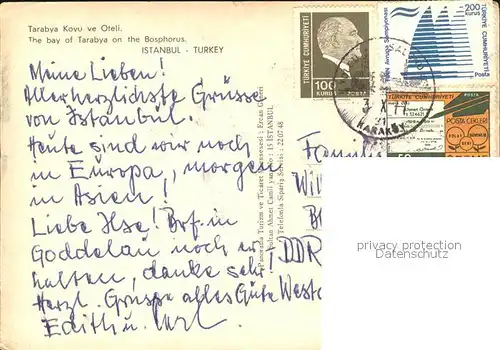 Tarabya Kovu ve Oteli.
The bay of Tarabya on the Bosphorus.
ISTANBUL - TURKEY
Meine Lieben!
Allerherzlichste Grüsse
von Istanbul.
Heute sind wir noch
in Europa, morgen
in Asien!
Liebe Ilse! Brf. in
Goddelau noch er-
halten, danke sehr!
Herzl. Grüsse alles Gute
Edith u. Karl
Panorama Turizm ve Ticaret Müessesesi: Ercan
Sultan Ahmet Camii yanı No: 15 İSTANBUL
Telefonla Sipariş Servisi: 22 07 48
DDR
TÜRKİYE CUMHURİYETİ
100
KURUŞ POSTA
TÜRKİYE CUMHURİYETİ
200
kuruş
Posta
TÜRKİYE CUMHURİYETİ
POSTA ÇEKLERİ
50
KARAKÖY
privacy protection
Datenschutz